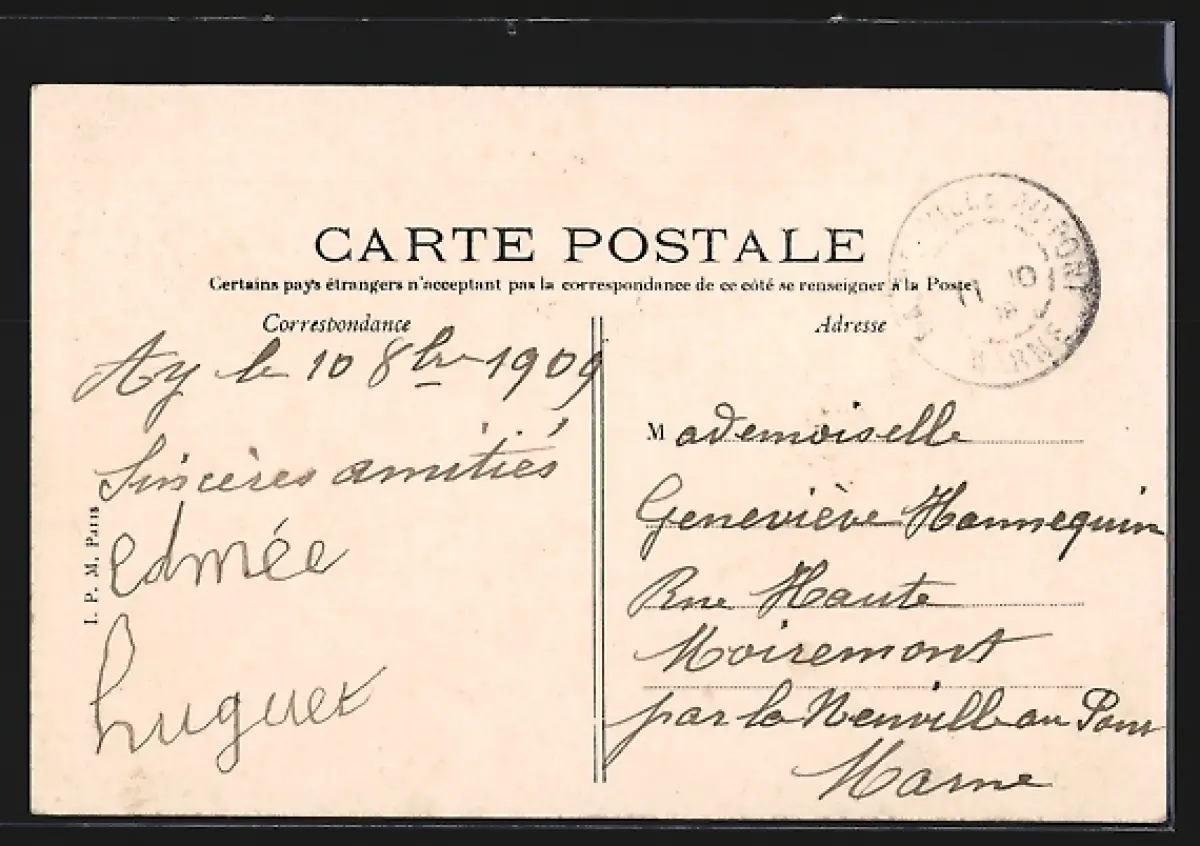 CARTE POSTALE
Certains pays étrangers n'acceptent pas la correspondance de ce côté se renseigner à la Poste
Correspondance
Ay le 10 8bre 1909
Sincères amitiés
Edmée
huguet
I. P. M. Paris
Adresse
Mademoiselle
Geneviève Hannequin
Rue Haute
Moiremont
par la Neuville au Pont
Marne
VILLE AU PONT
11 10
MARNE